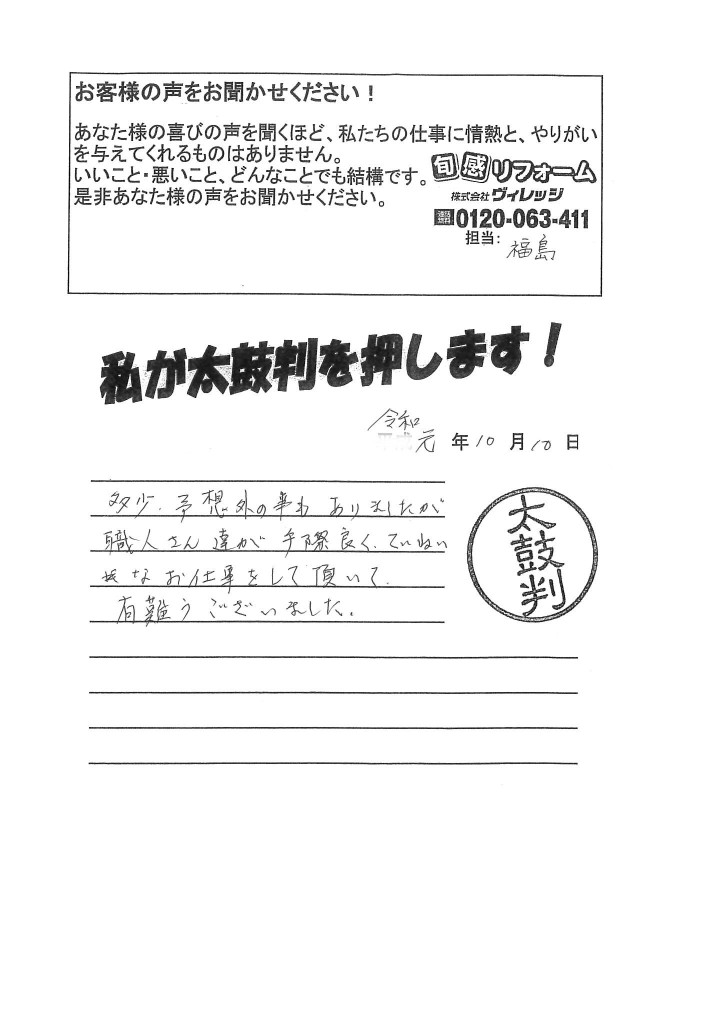 お客様の声をお聞かせください！
あなた様の喜びの声を聞くほど、私たちの仕事に情熱と、やりがい
を与えてくれるものはありません。
いいこと・悪いこと、どんなことでも結構です。
是非あなた様の声をお聞かせください。
旬感リフォーム
株式会社ヴィレッジ
0120-063-411
担当：福島
私が太鼓判を押します！
令和
元年10月10日
多少、予想外の事も ありましたが
職人さん達が 手際良く、ていねい
なお仕事をして頂いて、
有難うございました。
太鼓判